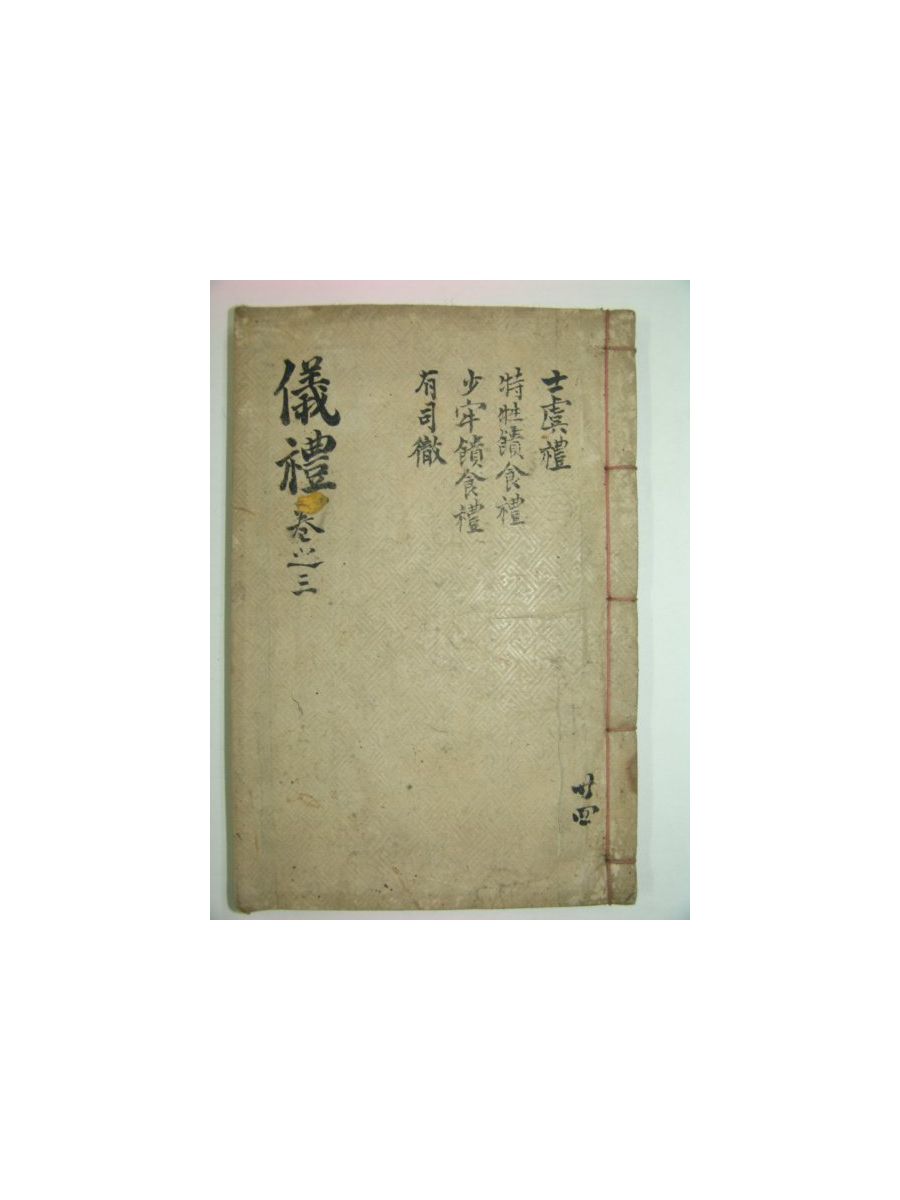 士虞禮
特牲饋食禮
少牢饋食禮
有司徹
儀禮 卷之三
卄四